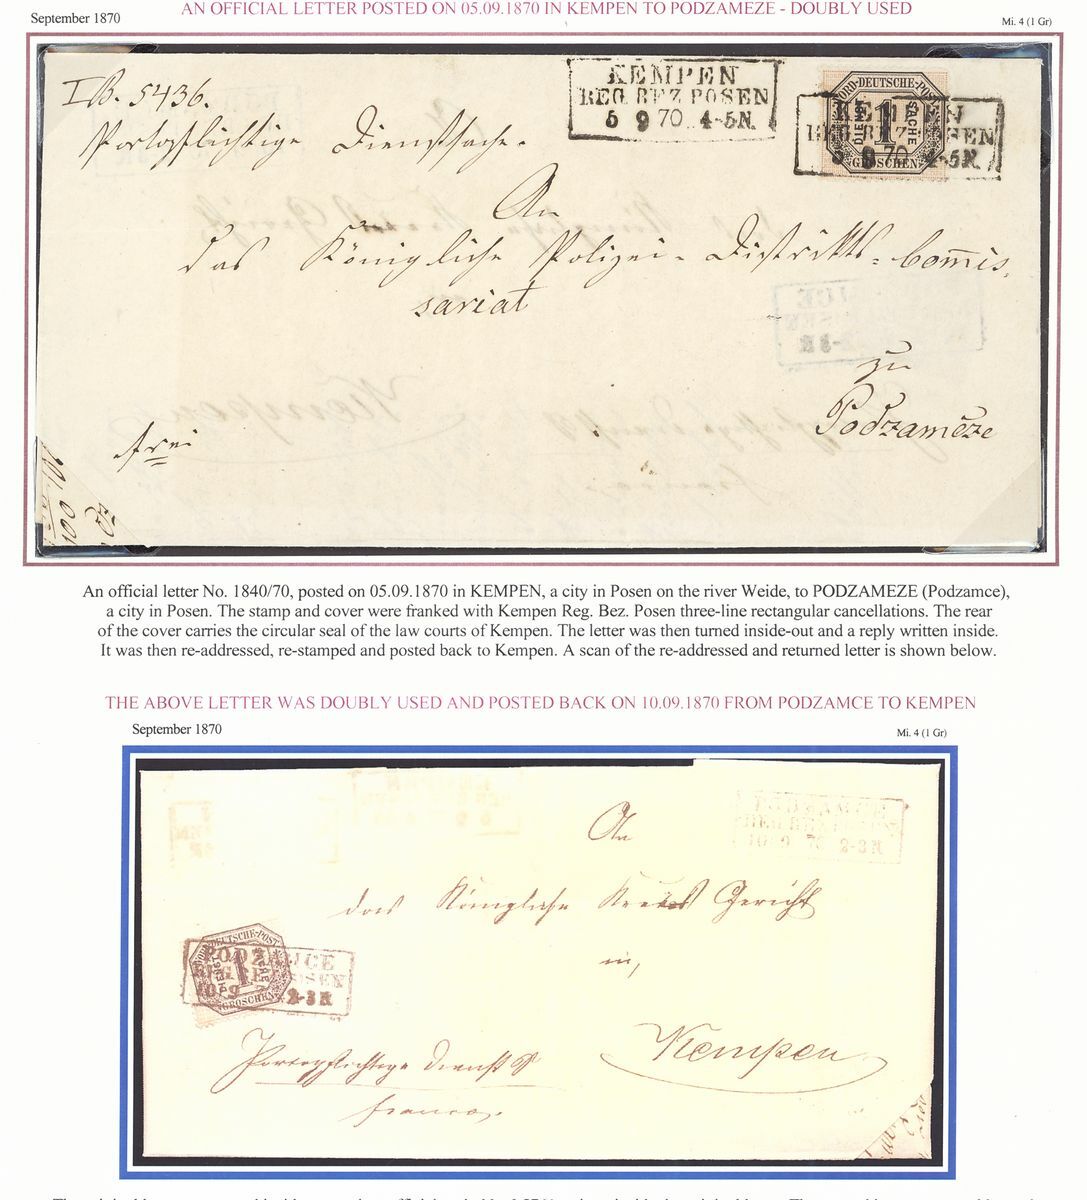 AN OFFICIAL LETTER POSTED ON 05.09.1870 IN KEMPEN TO PODZAMEZE - DOUBLY USED
September 1870
Mi. 4 (1 Gr)
I B. 5436.
Portopflichtige Dienstsache.
KEMPEN
REG. BEZ. POSEN
5 9 70 4-5N.
NORD-DEUTSCHE-POST
DIENST SACHE
1
GROSCHEN
KEMPEN
REG. BEZ. POSEN
5 9 70 4-5N.
An
das Königliche Polizei-Distrikts-Commis-
sariat
zu
Podzameze
frei
An official letter No. 1840/70, posted on 05.09.1870 in KEMPEN, a city in Posen on the river Weide, to PODZAMEZE (Podzamce),
a city in Posen. The stamp and cover were franked with Kempen Reg. Bez. Posen three-line rectangular cancellations. The rear
of the cover carries the circular seal of the law courts of Kempen. The letter was then turned inside-out and a reply written inside.
It was then re-addressed, re-stamped and posted back to Kempen. A scan of the re-addressed and returned letter is shown below.
THE ABOVE LETTER WAS DOUBLY USED AND POSTED BACK ON 10.09.1870 FROM PODZAMCE TO KEMPEN
September 1870
Mi. 4 (1 Gr)
PODZAMCE
REG. BEZ. POSEN
10 9 70 2-3N
An
das Königliche Kreis Gericht
in,
Kempen
NORD-DEUTSCHE-POST
1
GROSCHEN
PODZAMCE
REG. BEZ. POSEN
10 9 2-3N
Portopflichtige Dienst S
franco,